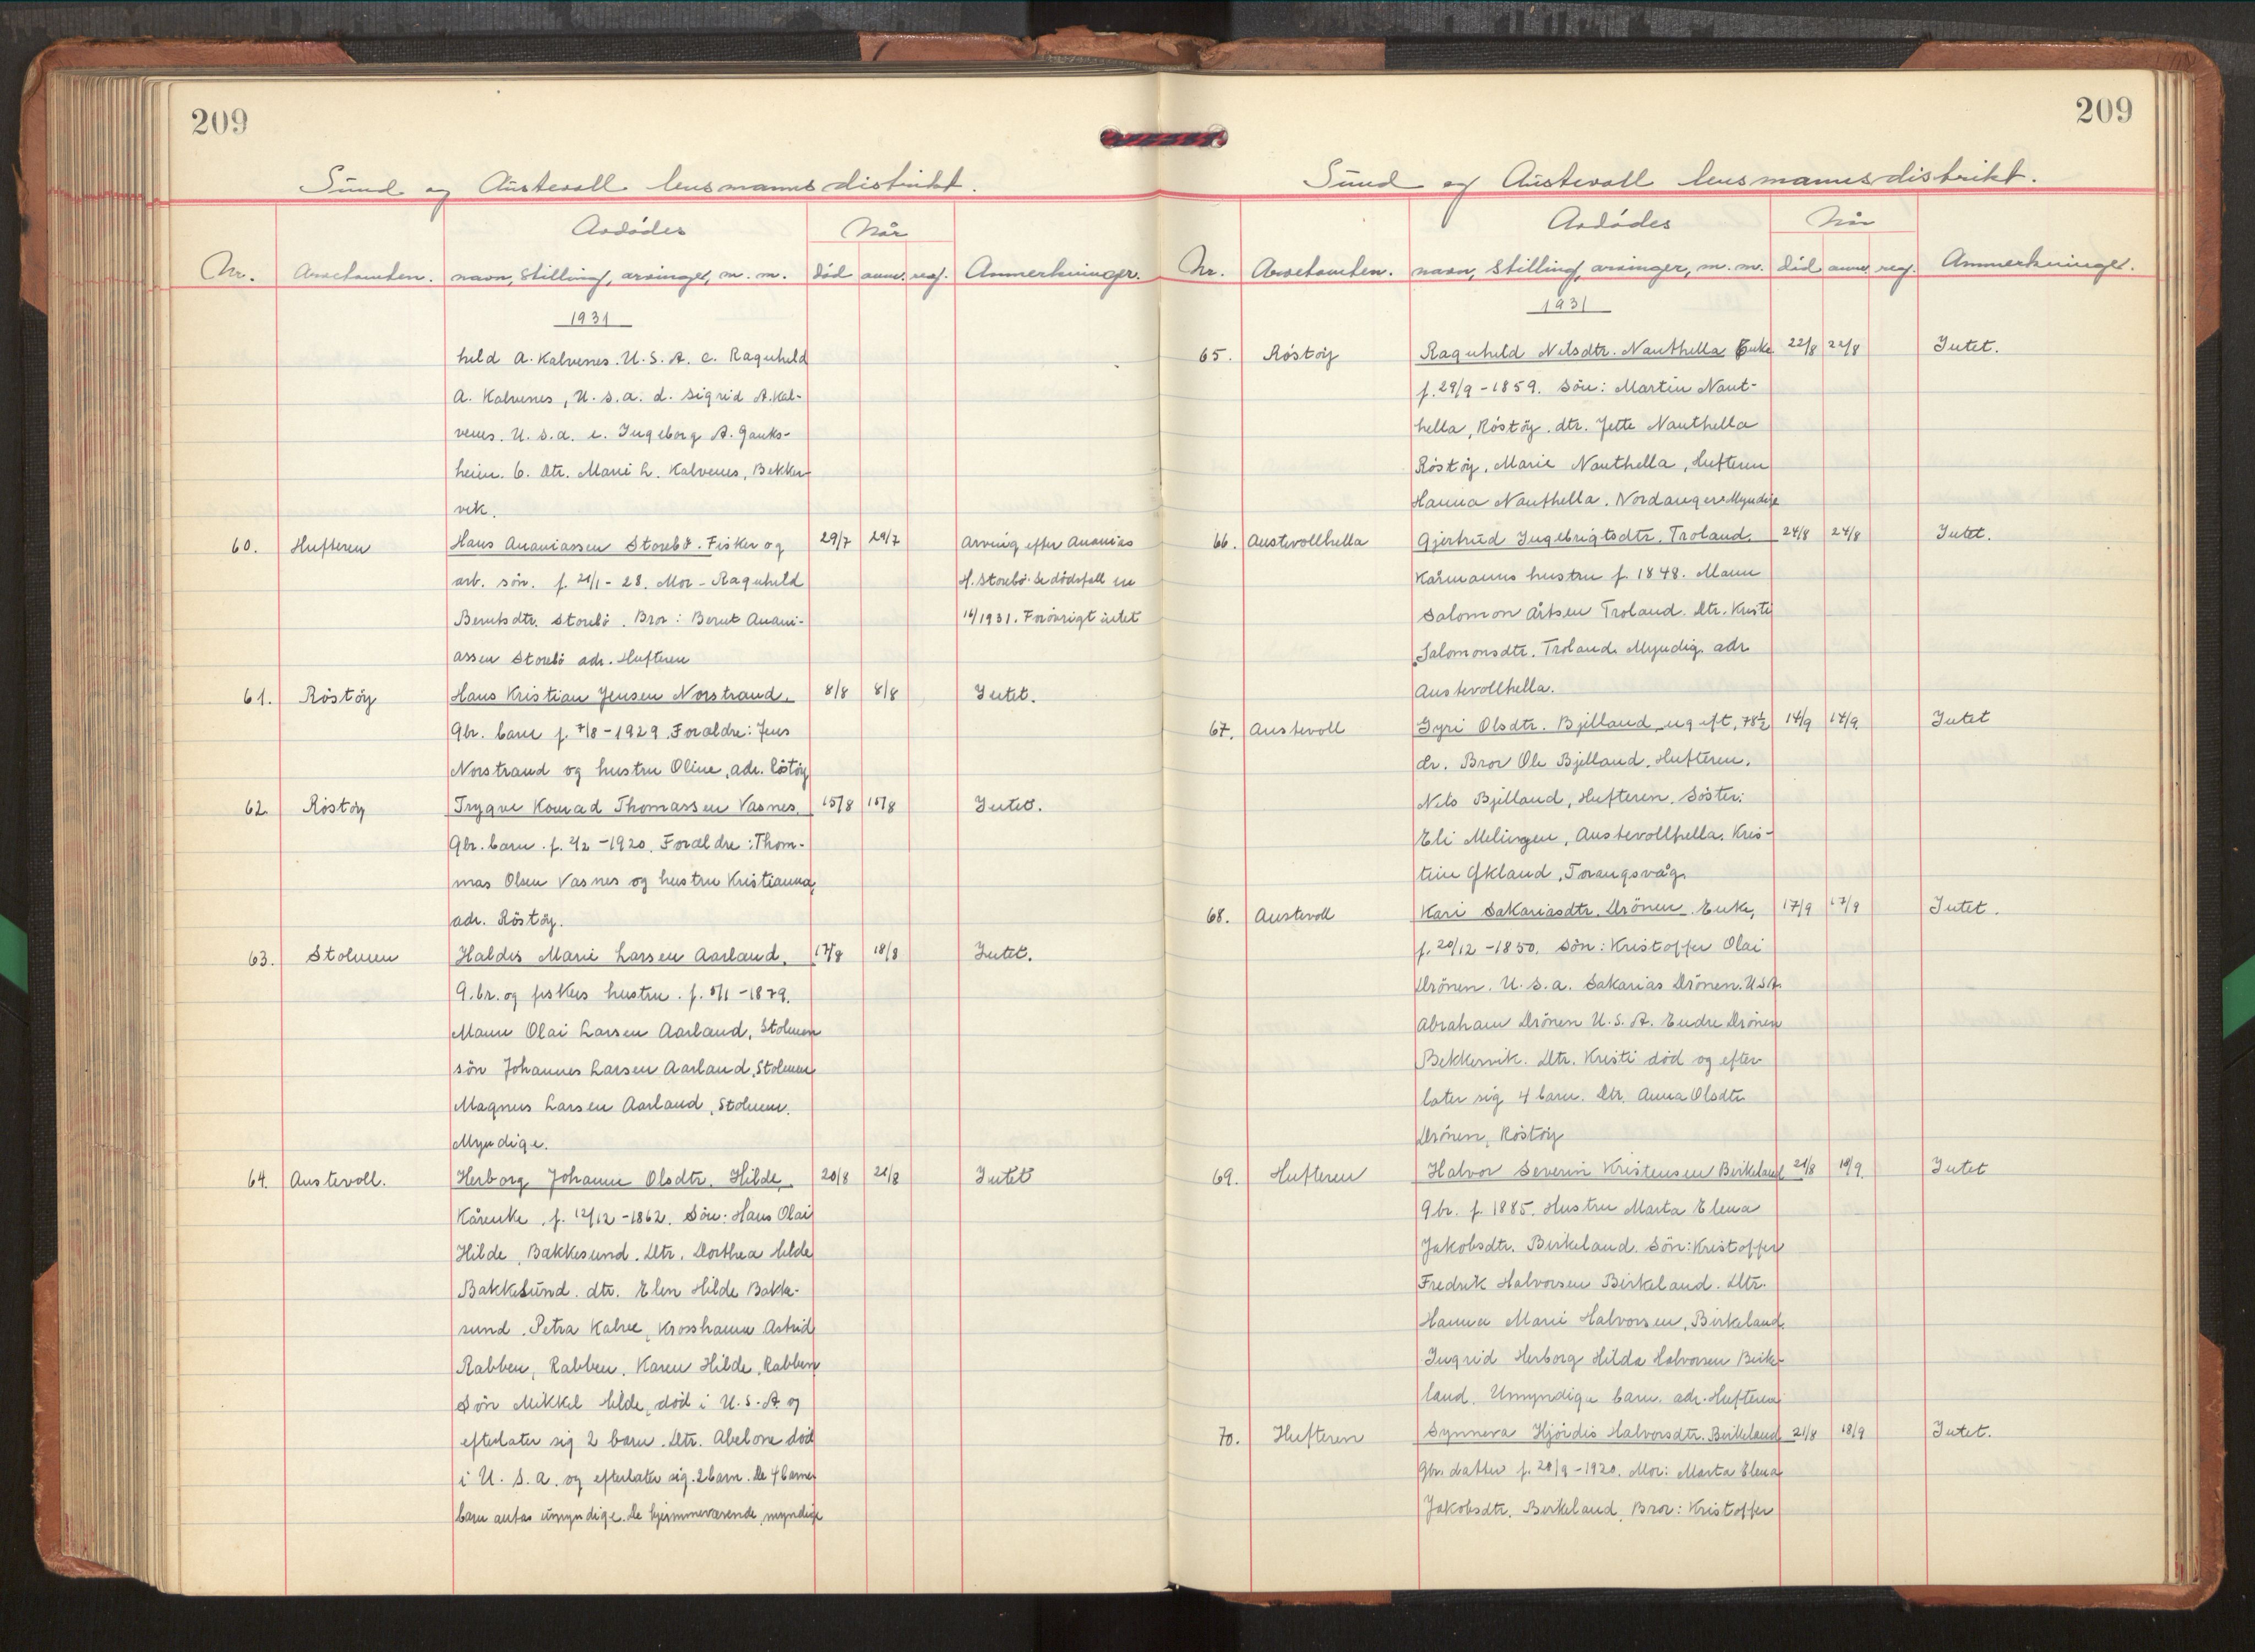 209
Sund og Austevoll lensmannsdistrikt.
Avdödes
Når
Nr.
Anmerkninger.
navn, Stilling, arvinger, m. m.
död
anm.
reg.
1931
hild A. Kalvenes. U. S. A. c. Ragnhild
A. Kalvenes, U. S. A. d. Sigrid A. Kal-
venes. U. S. A. e. Ingeborg A. Gauks-
heim. 6. dtr. Marie L. Kalvenes, Bekker
vik.
60. Hufteren Hans Ananiassen Storebö. Fisker og 29/7 29/7 Arving efter Ananias
arb. sön. f. 21/1 - 28. Mor - Ragnhild H. Storebö. Se dödsfall
Berntsdtr. Storebö. Bror: Bernt Anani- 16/1931. Forövrigt intet
assen Storebö adr. Hufteren
61. Röstöy Hans Kristian Jensen Norstrand. 8/8 8/8 Intet.
Gbr. barn f. 7/8 - 1929. Foraldre: Jens
Norstrand og hustru Oline, adr. Röstöy
62. Röstöy Trygve Konrad Thomassen Vasnes. 15/8 15/8 Intet.
Gbr. barn. f. 2/2 - 1920. Foraldre: Thom-
mas Olsen Vasnes og hustru Kristianna,
adr. Röstöy.
63. Stolmen Haldis Marie Larsen Aarland. 17/8 18/8 Intet.
G.br. og fiskers hustru. f. 5/1 - 1879.
Mann Olai Larsen Aarland, Stolmen
sön Johannes Larsen Aarland, Stolmen,
Magnus Larsen Aarland, Stolmen.
Myndige.
64. Austevoll. Herborg Johanne Olsdtr. Hilde. 20/8 21/8 Intet
Kårenke, f. 12/12 - 1862. Sön: Hans Olai
Hilde, Bakkesund. Dtr. Dorthea Hilde
Bakkesund. dtr. Elen Hilde Bakke-
sund. Petra Kalve, Krosshamn Astrid
Rabben, Rabben. Karen Hilde, Rabben
Sön Mikkel Hilde, död i U. S. A. og
efterlater sig 2 barn. Dtr. Abelone död
i U. S. A. og efterlater sig 2 barn. De 4 barne
barn antas umyndige. De hjemmeværende, myndige
209
Sund og Austevoll lensmannsdistrikt.
Avdödes
Når
Nr.
navn, Stilling, arvinger, m. m.
död
anm.
reg.
Anmerkninger.
1931
65. Röstöy Ragnhild Nilsdtr. Nauthella Enke 22/8 22/8 Intet.
f. 29/9 - 1859. Sön: Martin Naut-
hella, Röstöy. dtr. Jette Nauthella
Röstöy, Marie Nauthella, Hufteren
Hanna Nauthella. Nordanger. Myndige
66. Austevollhella Gjertrud Ingebrigtsdtr. Troland. 24/8 24/8 Intet.
Kårmanns hustru f. 1848. Mann
Salomon Troland. Dtr. Kristi
Salomonsdtr. Troland. Myndig. adr
Austevollhella.
67. Austevoll Gyri Olsdtr. Bjelland ugift, 78½ 14/9 14/9 Intet
år. Bror Ole Bjelland. Hufteren.
Nils Bjelland, Hufteren. Söster:
Eli Melingen, Austevollhella. Kris-
tine Økland, Torangsvåg.
68. Austevoll Kari Sakariasdtr. Drönen. Enke, 17/9 17/9 Intet.
f. 20/12 - 1850. Sön: Kristoffer Olai
Drönen. U. S. A. Sakarias Drönen. U S A.
Abraham Drönen U. S. A. Endre Drönen
Bekkervik. Dtr. Kristi död og efter
later sig 4 barn. Dtr. Anna Olsdtr.
Drönen, Röstöy
69. Hufteren Halvor Severin Kristensen Birkeland 21/8 18/9. Intet
Gbr. f. 1885. Hustru Marta Elena
Jakobsdtr. Birkeland. Sön: Kristoffer
Fredrik Halvorsen Birkeland. Dtr.
Hanna Marie Halvorsen, Birkeland.
Ingrid Herborg Hilda Halvorsen Birke-
land. Umyndige barn. adr. Hufteren
70. Hufteren Synneva Hjördis Halvorsdtr. Birkeland 21/8 18/9 Intet.
Gbr. datter f. 20/9 - 1920. Mor: Marta Elena
Jakobsdtr. Birkeland, Bror: Kristoffer